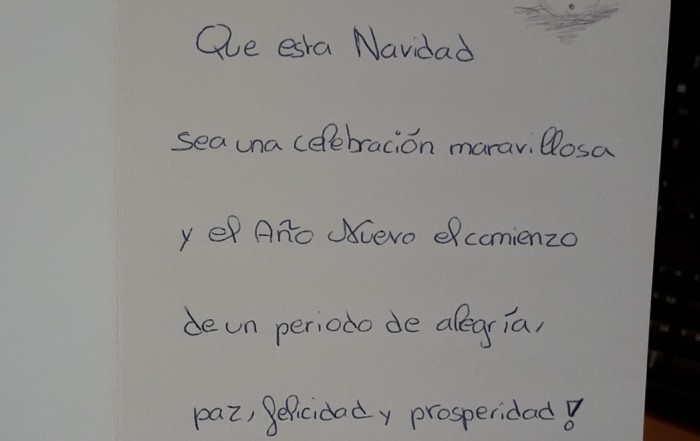 Que esta Navidad
sea una celebración maravillosa
y el Año Nuevo el comienzo
de un periodo de alegría,
paz, felicidad y prosperidad!